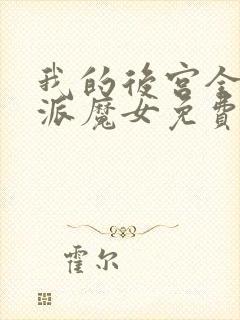 我的後宮全
派魔女免費
霍尔